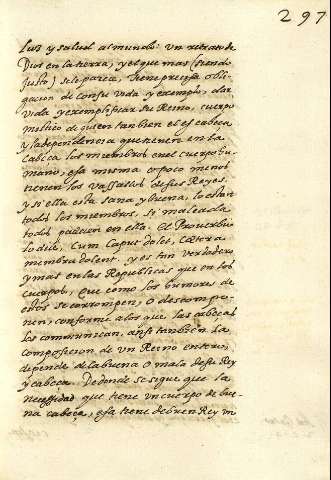 297
luz y salud al mundo: un retrato de
Dios en la tierra, y el que mas (siendo
justo) se le pareca, tiene precisa obli-
gacion de con su vida y exemplo, dar
vida y exemplificar su Reino, cuerpo
mistico de quien tanbien el es cabeca
y la dependencia que tienen en la
Cabeca los miembros en el cuerpo hu-
mano, esa misma o poco menos
tienen los vassallos de sus Reyes.
y si ella esta sana y buena, lo estan
todos los miembros, si mala ola
todos padecen en ella. El Proverbio
lo dize, Cum Caput dolet, Cætera
membra dolent. y es tan verdadero
y mas en las Republicas que en los
cuerpos, que como los humores de
estos se corrompen, o descompo-
nen, conforme a los que las cabecas
les comunican, ansi tambien la
composicion de un Reino entero,
depende de la buena o mala de su Rey
y cabeca. De donde se sigue que la
necessidad que tiene un cuerpo de bue-
na cabeça, esa tiene de buen Rey un